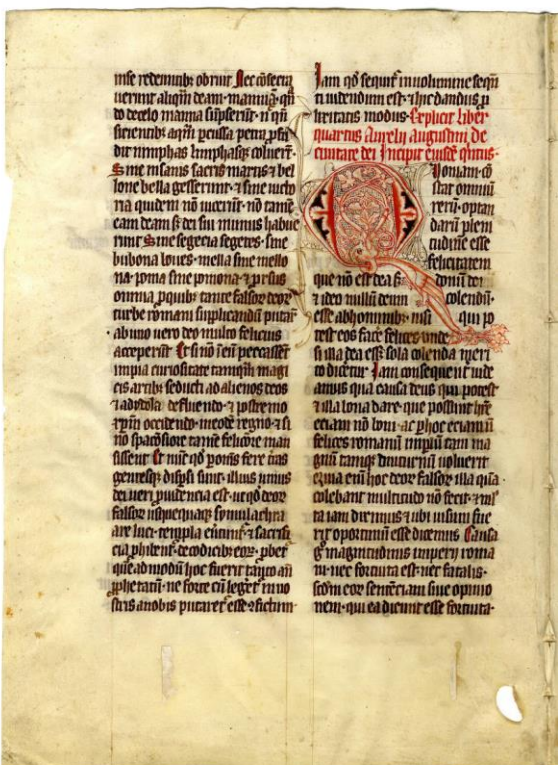 inse redeuntibꝫ obruit Nec cōsecra
uerunt aliqͣm deam mannā qn̄
do decelo manna sūpserūt n̄ qn̄
sicientibꝫ aqm̄ pcussa petra pfu
dit nimphas limphasqꝫ coluert̄
Sine insanis sacris martis ⁊ bel
lone bella gesserunt ⁊ sine victo
ria quidem nō uicerūt nō tamē
eam deam sꝫ dei sui munus habue
runt Sine segecia segetes sine
bubona boues mella sine mello
na poma sine pomona ⁊ prsus
omnia p quibꝫ tante falsor deor
turbe romani supplicandū putar̄
ab uno uero deo multo felicius
acceperūt Et si nō ī eū peccassēt
impia curiositate tamqͣm magi
cis artibꝫ seducti ad alienos deos
⁊ ad ydola defluendo ⁊ postremo
xpm̄ occidendo in eodē regno ⁊ si
nō spaciosiore tamē feliciore man
sissent Et nūc qd̄ p omīs fere tras
gentesqꝫ dispsi sunt illius unius
dei ueri puidencia est ut qd̄ deor
falsor usquequaqꝫ simulachra
are luci templa euertūt̄ ⁊ sacrifi
cia phibent̄ de codicibꝫ eor pbet̄
quēadmodū hoc fuerit tanto an̄
pphetatū ne forte cū leget̄ in no
stris a nobis putaret̄ esse cōfictum
Iam qd̄ sequit̄ in uolumine sequē
ti uidendum est ⁊ hic dandus p
lixitatis modus Explicit liber
quartus Aurelii augustini de
ciuitate dei Incipit eiusdē qͥntus
Quoniam cō
stat omniū
rerū optan
darū pleni
tudinē esse
felicitatem
que nō est dea sꝫ donū dei
⁊ ideo nullū deum colendū
esse ab hominibꝫ nisi qui po
test eos facē felices unde
si illa dea esset sola colenda merit
to dicetur Iam consequent̄ uide
amus qua causa deus qui potest
⁊ illa bona dare que possunt hr̄e
eciam nō boni ac p hoc eciam n̄
felices romanū impiū tam ma
gnū tamqꝫ diuturnū uoluerit
quia enī hoc deor falsor illa quā
colebant multitudo nō fecit ⁊ ml̄
ta iam diximus ⁊ ubi uisum fue
rit oportunū esse dicemus Causa
g̊ magnitudinis imperij roma
ni nec fortuita est nec fatalis
scd̄m eor sentēciam siue opinio
nem qui ea dicunt esse fortuita